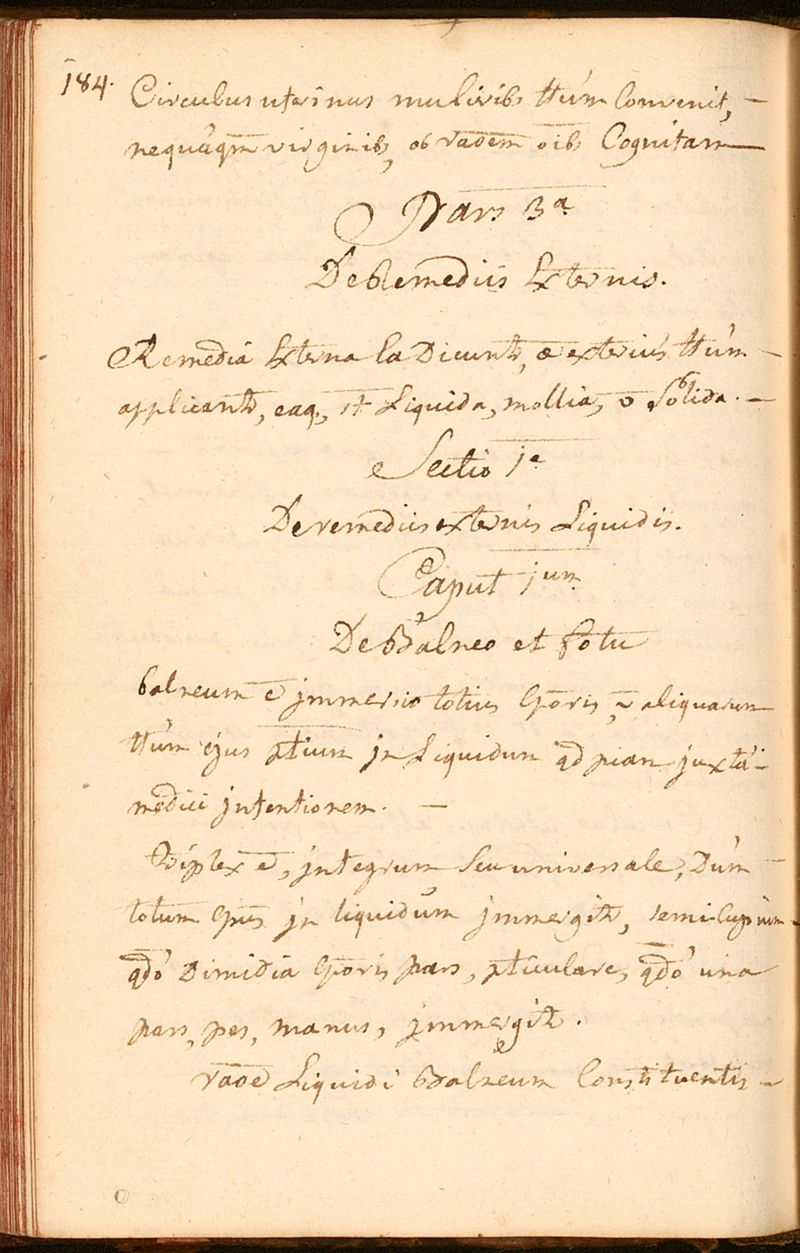 184.
Circulus uterinus muliribs ttúm Convenit, —
nequáqm virginib, ob raōem oib Cognitam —
Pars 3ª
De Remediis Externis.
Remedia Externa ea Dicuntr, æ exteriús ttúm —
applicantr, eaq, st Liquida, mollia, v Solida. —
Sectio 1ª
De remediis externis Liquidis.
Caput 1um
De Balneo et fotu
balneum ē jmmersio totius Cporis, aliquarum
ttúm ejus ptium jn Liquidum qdpiam juxtá
medici jntentionem. —
triplex ē, jntegrum Seu universale, Dúm —
totum Cpus jn liquidúm jmmergitr, semi-Cupium
qdo Dimidia Cporis pars, pticulare, qdo una
pars, pes, manus, jmmergitr.
raōe Liquidi Balneum Constituentis —